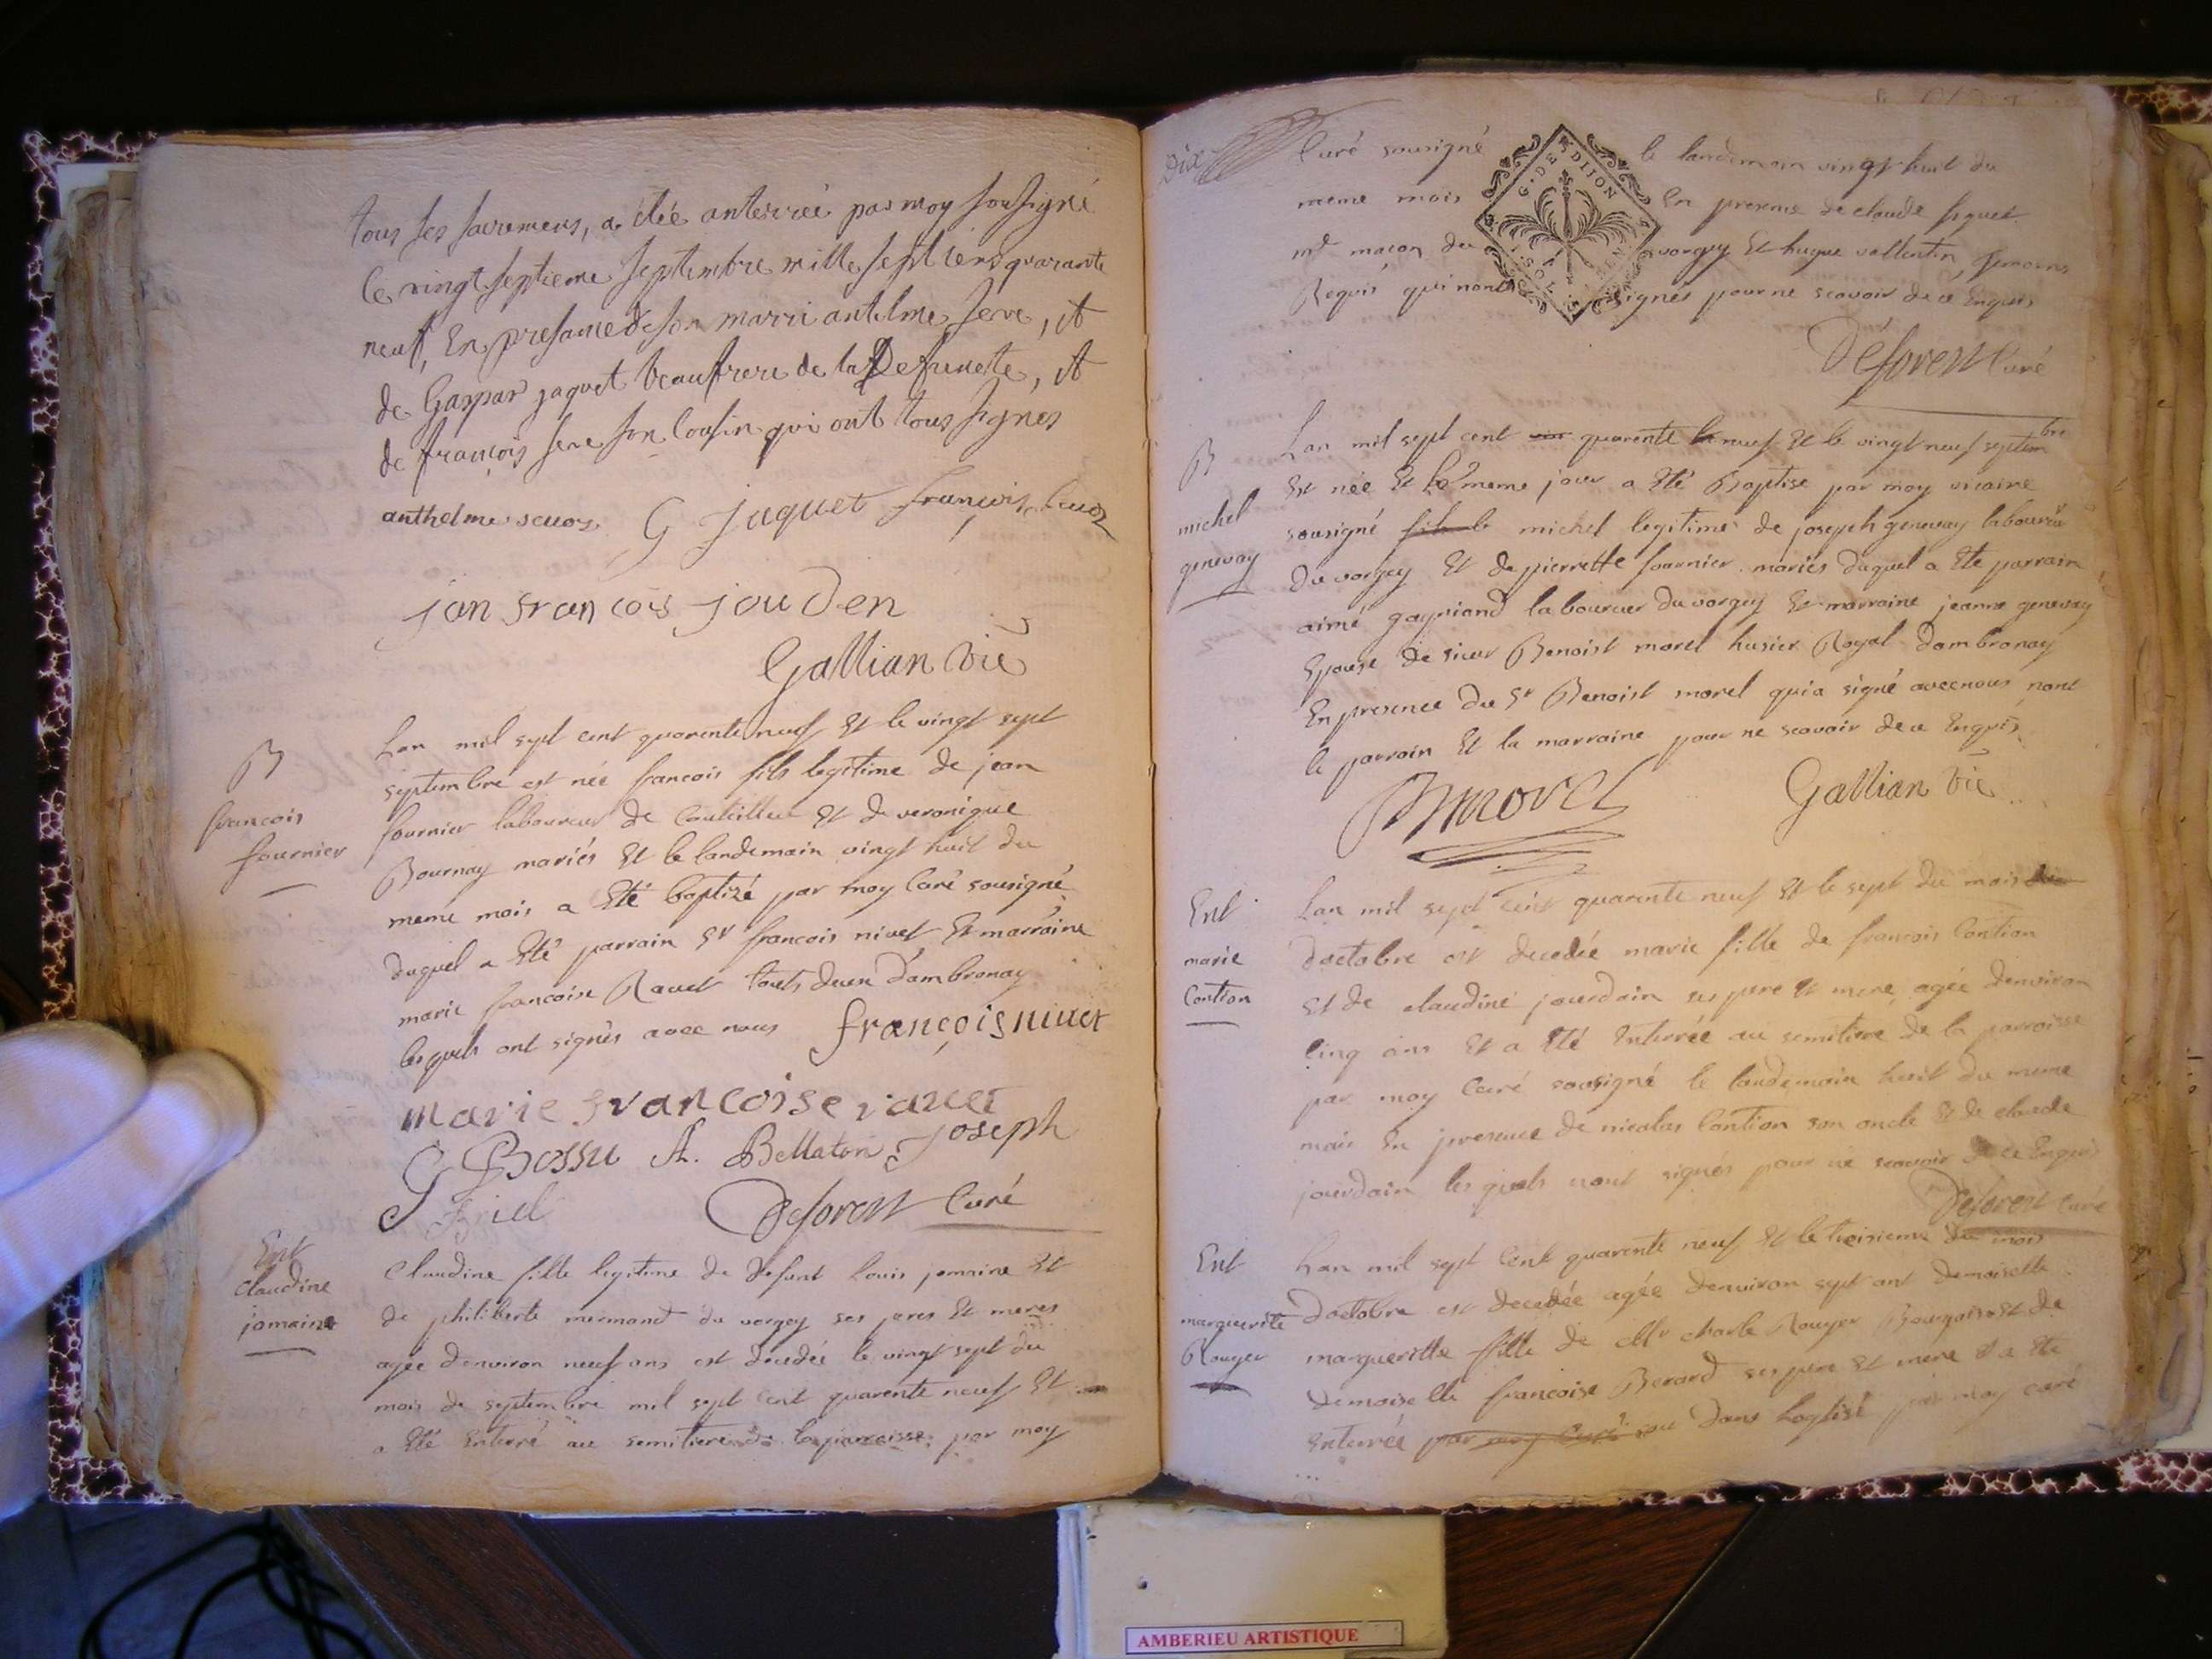 tous ses sacremens, a étée anterrée par moy sousigné
le vingt septieme septembre mille sept cens quarante
neuf, En presance de son marri antelme serve, et
de Gaspar jaquet beaufrere de la Defuncte, et
de françois serve son cousin qui ont tous signés
anthelme G jaquet françois
jan françois jouden
Gallian vic
B
françois
fournier
Lan mil sept cent quarente neuf Et le vingt sept
septembre est née francois fils legitime de jean
fournier laboureur de Et de veronique
Bournay mariés Et le landemain vingt huit du
meme mois a Eté baptizé par moy Curé sousigné
duquel a Eté parrain Sr francois nivet Et marraine
marie francoise Ravet touts deux d'ambronay
lesquels ont signés avec nous françois nivet
marie françoise ravet
G Bossu A. Bellaton joseph
Deforest Curé
Ent
Claudine
jomaine
Claudine fille legitime de defunt Louis jomaine Et
de philiberte mermand du vorgey ses peres Et meres
agée denviron neuf ans est decedée le vingt sept du
mois de septembre mil sept cent quarente neuf Et
a Eté Enterré au semitiere de la parroisse par moy
Dix
Curé sousigné le landemain vingt huit du
meme mois En presence de claude piquet
md macon du vorgey Et hugue vallentin temoins
Requis qui nont signés pour ne scavoir de ce Enquis
G. DE DIJON
Deforest Curé
B
michel
genevay
Lan mil sept cent quarente neuf Et le vingt neuf septembre
Est née Et le meme jour a Eté Baptise par moy vicaire
sousigné michel legitime de joseph genevay laboureur
du vorgey Et de pierrette fournier mariés duquel a Ete parrain
aimé gagniand laboureur du vorgey Et marraine jeanne genevay
Epouse de sieur Benoist morel husier Royal dambronay
En presence du Sr Benoist morel qui a signé avec nous nont
le parrain Et la marraine pour ne scavoir de ce Enquis
Bmorel Gallian vic
Ent
marie
Contion
Lan mil sept cent quarante neuf Et le sept du mois
doctobre est decedée marie fille de francois Contion
Et de claudine jourdain ses pere Et mere agée denviron
Cinq ans Et a Eté Enterrée au semitiere de la parroisse
par moy Curé sousigné le landemain huit du meme
mois En presence de nicolas Contion son oncle Et de claude
jourdain lesquels nont signés pour ne scavoir de ce Enquis
Deforest Curé
Ent
marguerite
Rouyer
Lan mil sept Cent quarente neuf Et le treisieme du mois
doctobre est decedée agée denviron sept ant demoiselle
margueritte fille de Mr charle Rouyer Bourgois Et de
demoiselle francoise Berard ses pere Et mere Et a Ete
Enterrée par moy Curé dans leglise par moy curé
AMBERIEU ARTISTIQUE